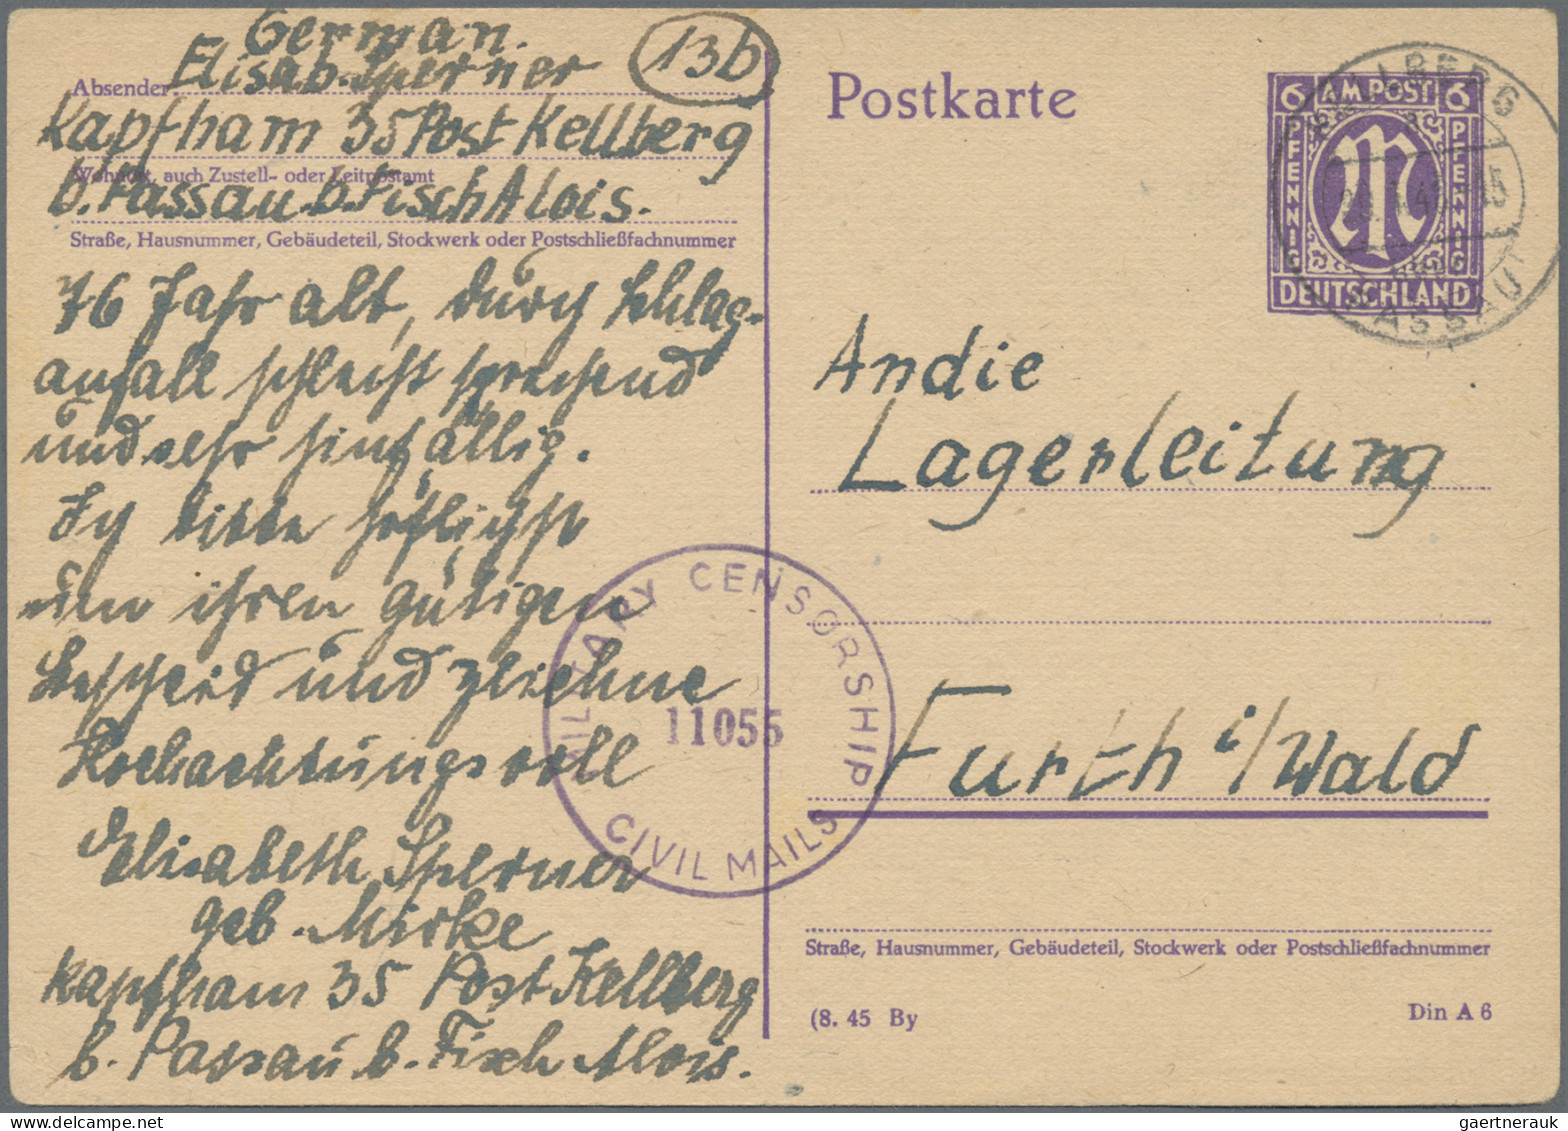 German.
Elisab. Sperner
13b
Absender
Kapfham 35 Post Kellberg
Wohnort, auch Zustell- oder Leitpostamt
b. Passau b. Fisch Alois.
Straße, Hausnummer, Gebäudeteil, Stockwerk oder Postschließfachnummer
76 Jahr alt, durch Schlag-
anfall schlecht sprechend
und sehr hinfällig.
Ich bitte höflichst
um ihren gütigen
Bescheid und zeichne
Hochachtungsvoll
Elisabeth Sperner
geb. Mirke
Kapfham 35 Post Kellberg
b. Passau b. Fisch Alois.
MILITARY CENSORSHIP
11055
CIVIL MAILS
Postkarte
6 AM POST 6
PFENNIG PFENNIG
M
DEUTSCHLAND
KELLBERG
PASSAU
An die
Lagerleitung
Furth i/Wald
Straße, Hausnummer, Gebäudeteil, Stockwerk oder Postschließfachnummer
(8. 45 By
Din A 6
gaertnerauk @ delcampe.net